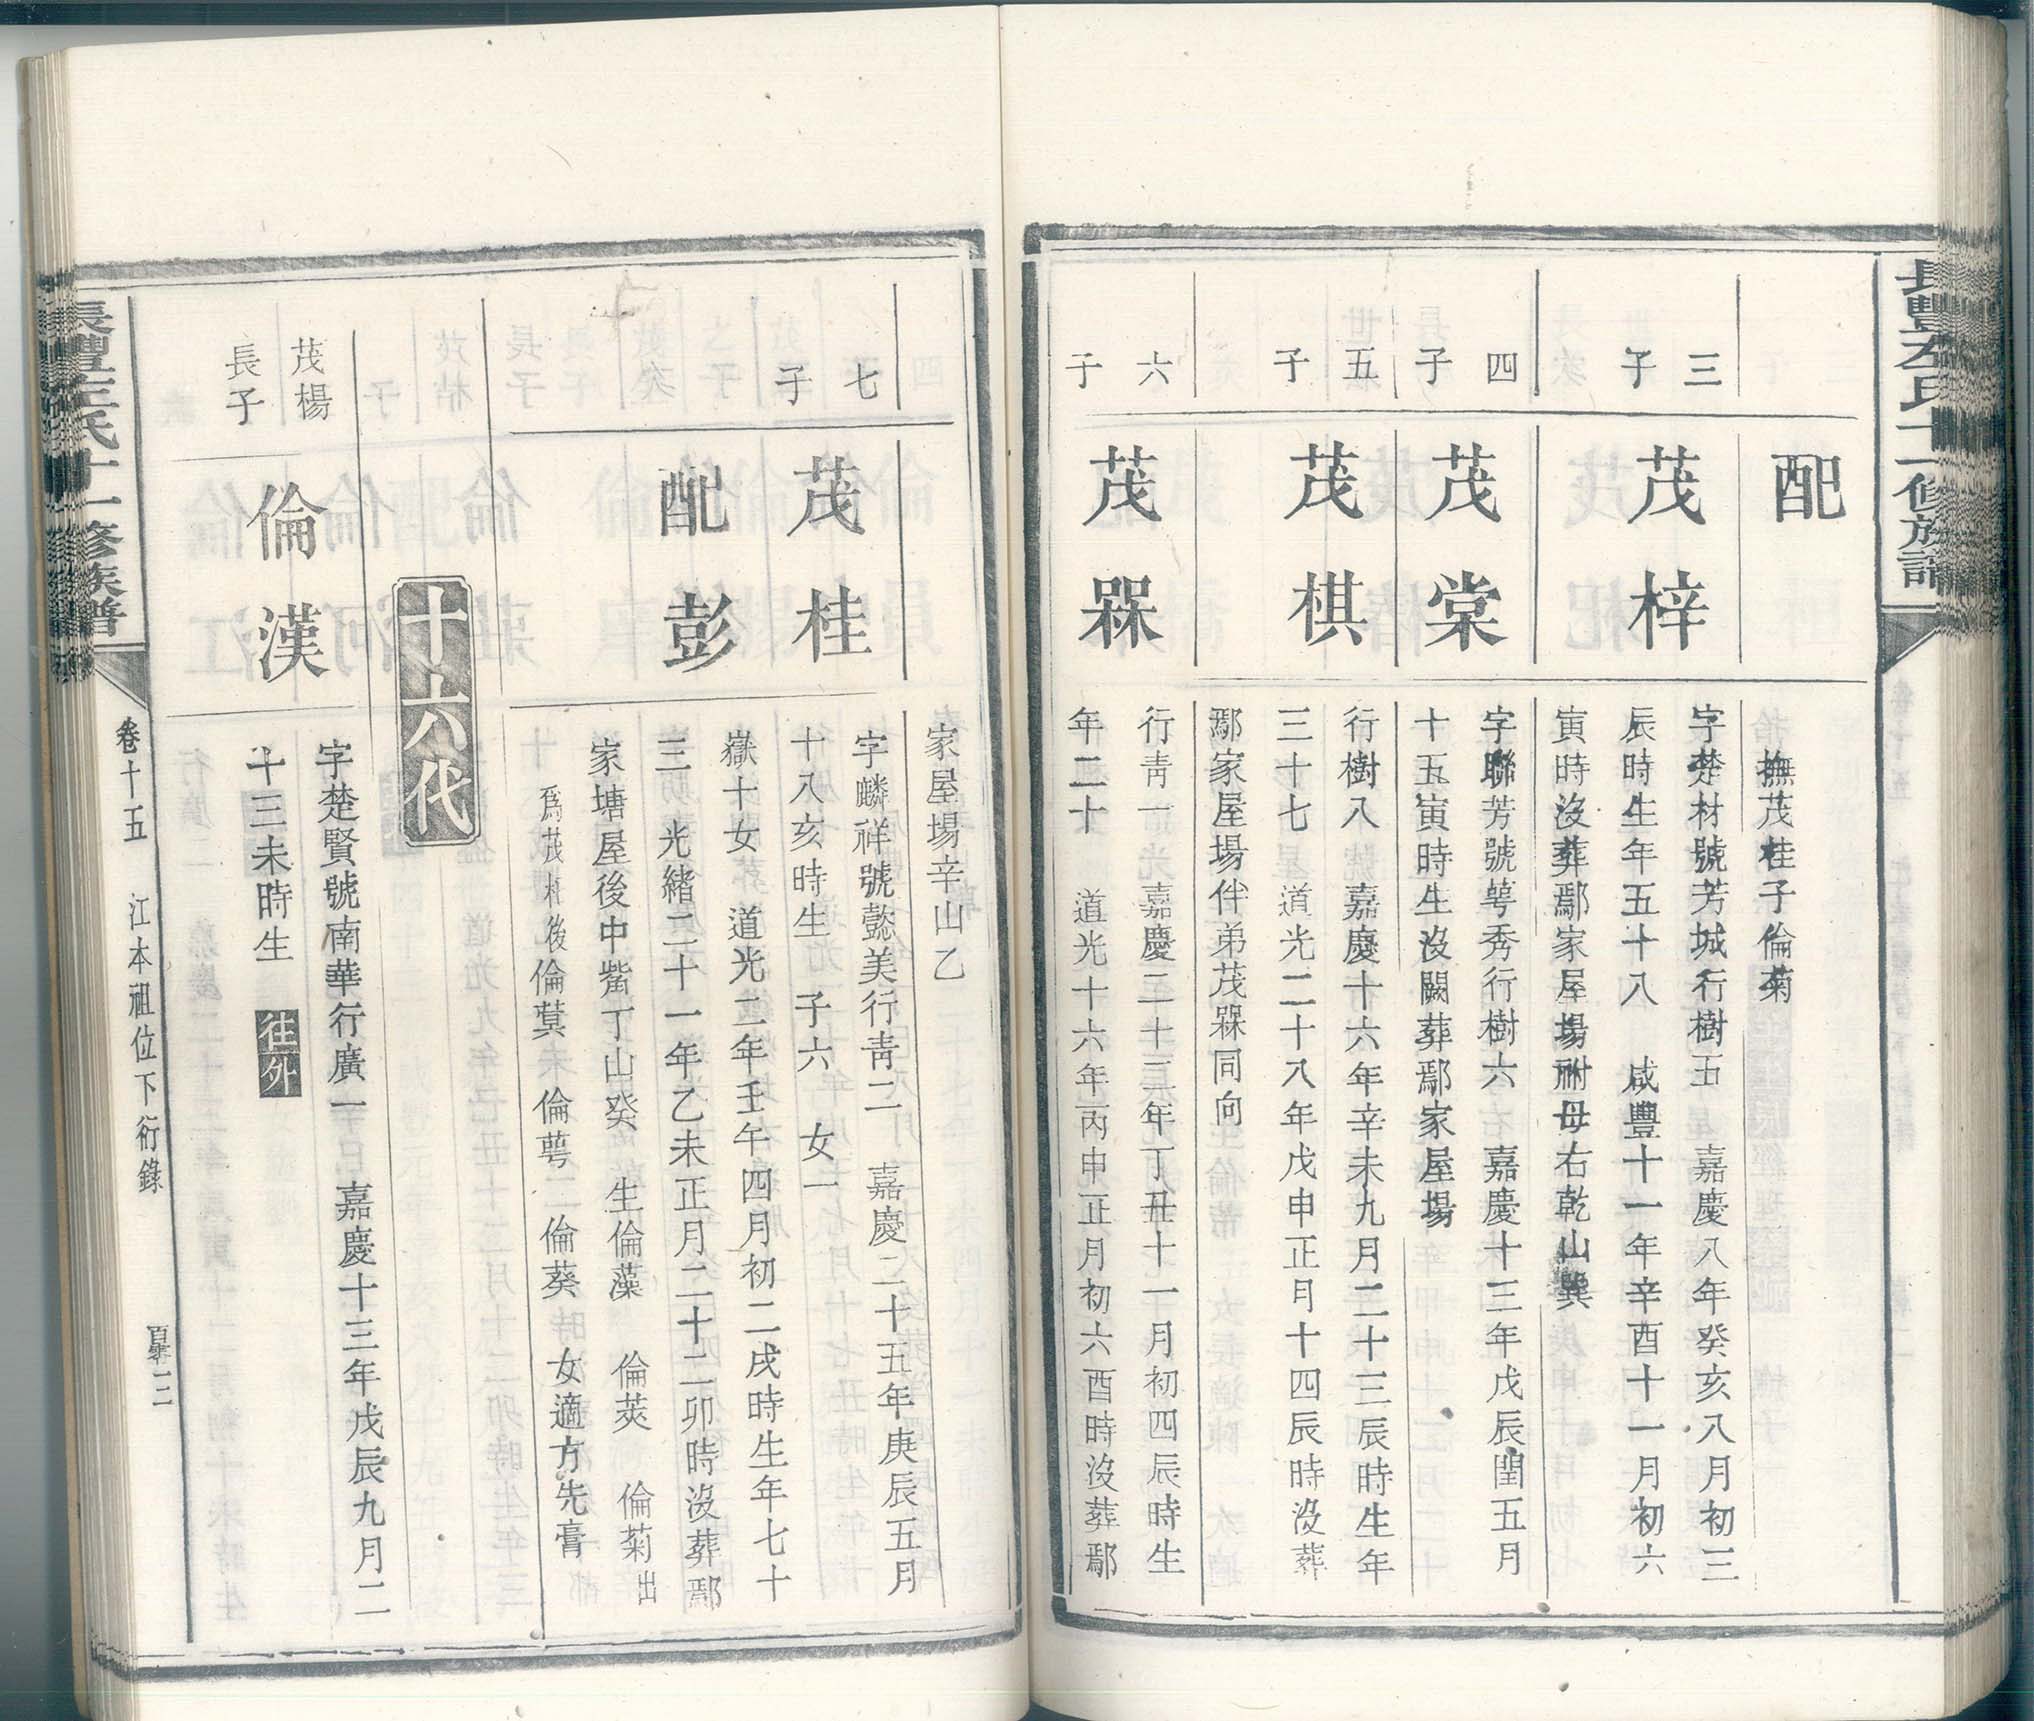 長豐左氏十一修族譜
配
撫茂桂子倫菊
三子
茂梓
字楚材號芳城行樹五 嘉慶八年癸亥八月初三
辰時生年五十八 咸豐十一年辛酉十一月初六
寅時沒葬鄢家屋場祔母右乾山巽
四子
茂棠
字聯芳號萼秀行樹六 嘉慶十三年戊辰閏五月
十五寅時生沒闕葬鄢家屋場
五子
茂棋
行樹八 嘉慶十六年辛未九月二十三辰時生年
三十七 道光二十八年戊申正月十四辰時沒葬
鄢家屋場伴弟茂槑同向
六子
茂槑
行青一 嘉慶二十二年丁丑十一月初四辰時生
年二十 道光十六年丙申正月初六酉時沒葬鄢
家屋場辛山乙
七子
茂桂
字麟祥號懿美行青二 嘉慶二十五年庚辰五月
十八亥時生 子六 女一
配彭
嶽十女 道光二年壬午四月初二戌時生年七十
三 光緒二十一年乙未正月二十二卯時沒葬鄢
家塘屋後中嘴丁山癸 生倫藻 倫莢 倫菊出
爲茂 後倫蓂 倫萼 倫葵 女適方先膏
十六代
茂楊長子
倫漢
字楚賢號南華行廣一 嘉慶十三年戊辰九月二
十三未時生 往外
長豐左氏十一修族譜
卷十五 江本祖位下衍錄